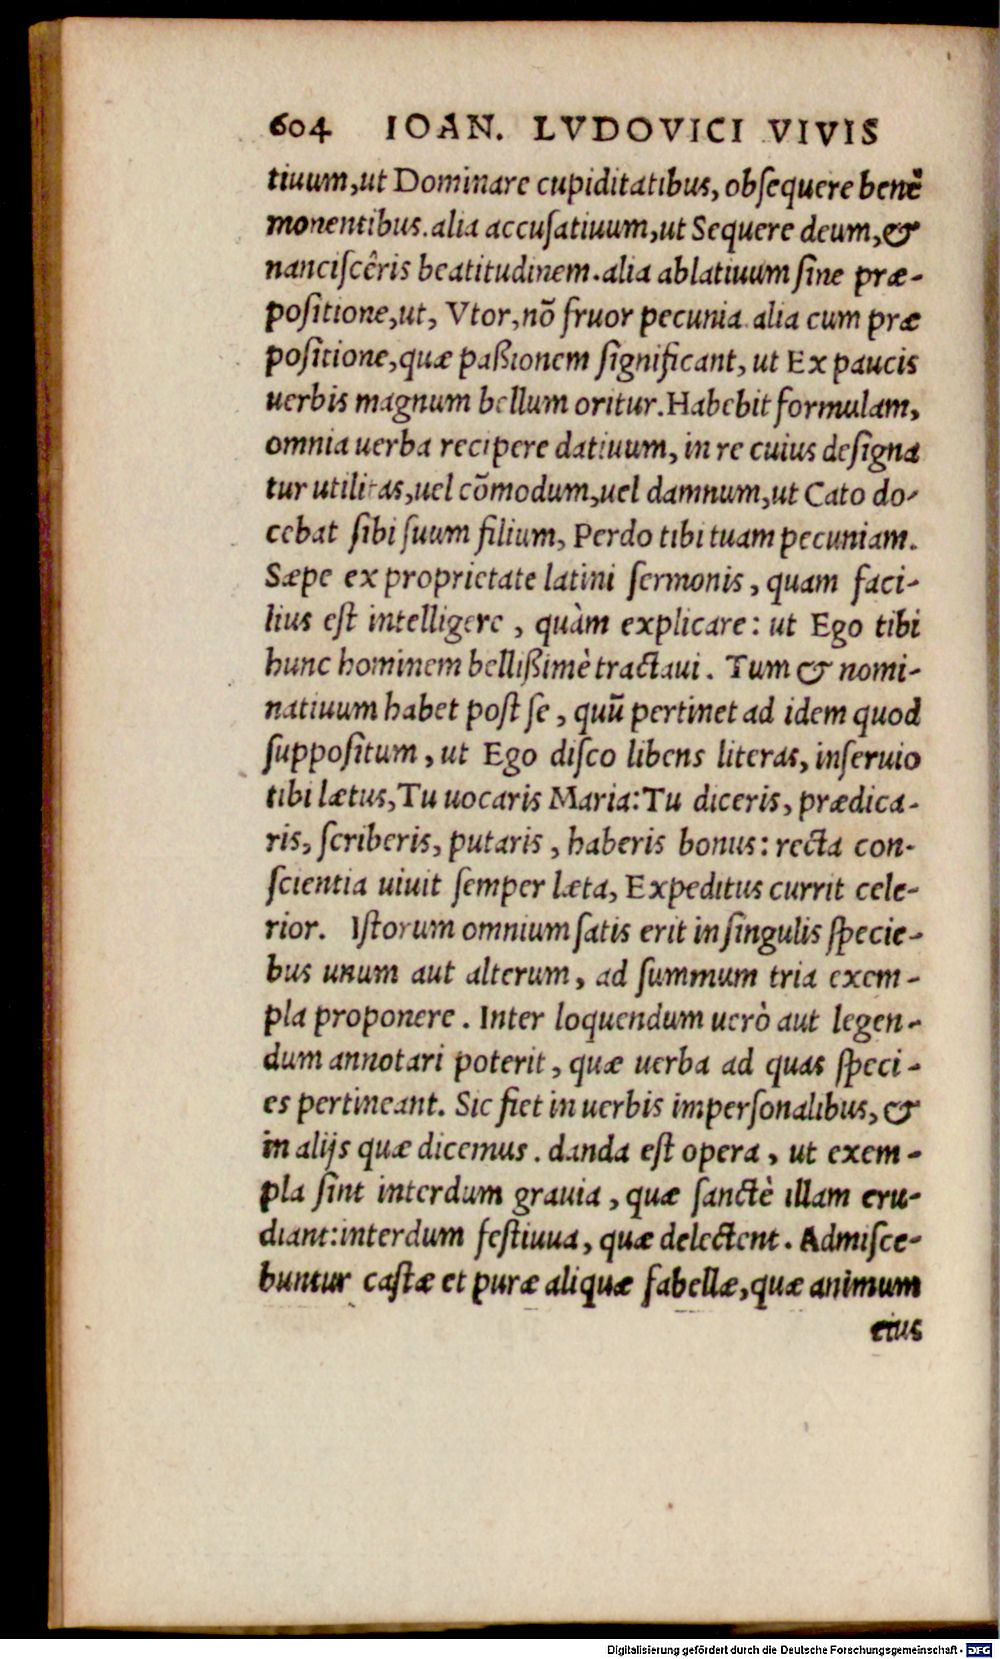 604 IOAN. LVDOVICI VIVIS
tiuum,ut Dominare cupiditatibus, obſequere benè
monentibus. alia accuſatiuum,ut Sequere deum,&
nanciſcêris beatitudinem. alia ablatiuum ſine præ-
poſitione,ut, Vtor,nõ fruor pecunia. alia cum præ
poſitione,quæ paßionem ſignificant, ut Ex paucis
uerbis magnum bellum oritur. Habebit formulam,
omnia uerba recipere datiuum, in re cuius deſigna
tur utilitas,uel cõmodum,uel damnum,ut Cato do-
cebat ſibi ſuum filium, Perdo tibi tuam pecuniam.
Sæpe ex proprietate latini ſermonis, quam faci-
lius eſt intelligere, quàm explicare: ut Ego tibi
hunc hominem bellißimè tractaui. Tum & nomi-
natiuum habet poſt ſe, quũ pertinet ad idem quod
ſuppoſitum, ut Ego diſco libens literas, inſeruio
tibi lætus,Tu uocaris Maria:Tu diceris, prædica-
ris, ſcriberis, putaris, haberis bonus: recta con-
ſcientia uiuit ſemper læta, Expeditus currit cele-
rior. Iſtorum omnium ſatis erit in ſingulis ſpecie-
bus unum aut alterum, ad ſummum tria exem-
pla proponere. Inter loquendum uerò aut legen-
dum annotari poterit, quæ uerba ad quas ſpeci-
es pertineant. Sic fiet in uerbis imperſonalibus, &
in alijs quæ dicemus. danda eſt opera, ut exem-
pla ſint interdum grauia, quæ ſanctè illam eru-
diant:interdum feſtiuua, quæ delectent. Admiſce-
buntur caſtæ et puræ aliquæ fabellæ,quæ animum
eius
Digitalisierung gefördert durch die Deutsche Forschungsgemeinschaft - DFG